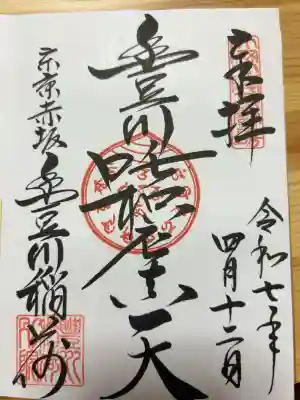 奉拝
令和七年
四月十二日
豊川吒枳尼天
東京赤坂
豊川稲荷